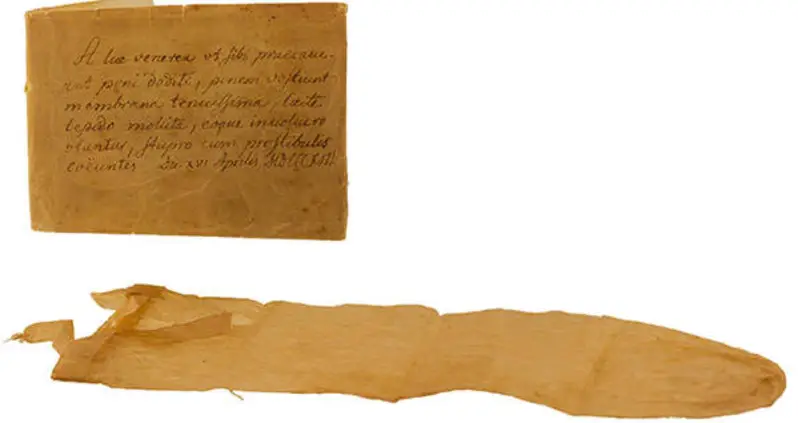 A lue venerea vt sibi praecaue-
ant peni dediti, penem vestiunt
membrana tenuissima, lacte
tepido mollita, eoque inuolucro
stupro cum prostibulis
coëuntes XVI Aprilis